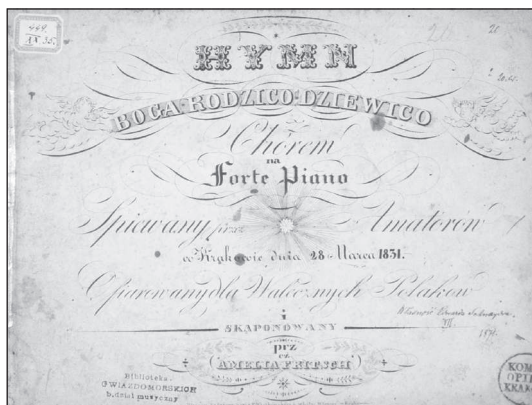 444.
IX. 35.
HYMN
BOGA-RODZICO-DZIEWICO
Chórem
na
Forte Piano
Śpiewany przez Amatorów
w Krakowie dnia 28 Marca 1831.
Ofiarowany dla Walecznych Polaków
i
SKAPONOWANY
prz
ez
AMELIA FRITSCH
Biblioteka
GWIAZDOMORSKICH
b. dział muzyczny
KOM
OPIE
KRAK